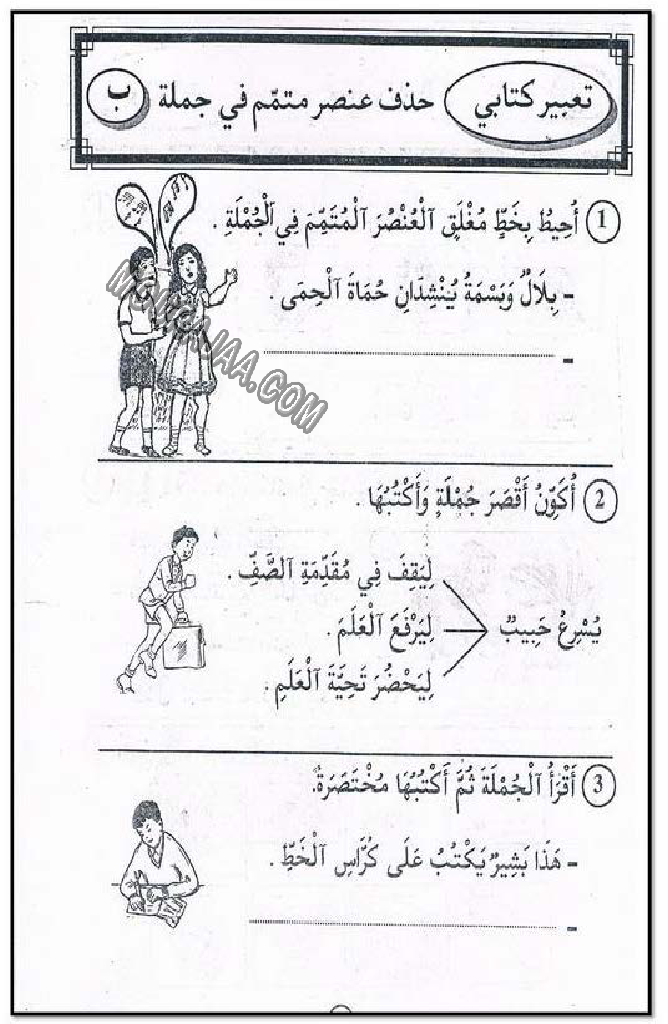 تعبير كتابي حذف عنصر متمّم في جملة ب
1 أُحِيطُ بِخَطٍّ مُغْلَقٍ ٱلْعُنْصُرَ ٱلْمُتَمِّمَ فِي ٱلْجُمْلَةِ .
- بِلَالٌ وَبَسْمَةُ يُنْشِدَانِ حُمَاةَ ٱلْحِمَى .
MONGAJAA.COM
2 أُكَوِّنُ أَقْصَرَ جُمْلَةٍ وَأَكْتُبُهَا .
لِيَقِفَ فِي مُقَدِّمَةِ ٱلصَّفِّ .
يُسْرِعُ حَبِيبٌ لِيَرْفَعَ ٱلْعَلَمَ .
لِيَحْضُرَ تَحِيَّةَ ٱلْعَلَمِ .
3 أَقْرَأُ ٱلْجُمْلَةَ ثُمَّ أَكْتُبُهَا مُخْتَصَرَةً.
- هَذَا بَشِيرٌ يَكْتُبُ عَلَى كُرَّاسِ ٱلْخَطِّ .